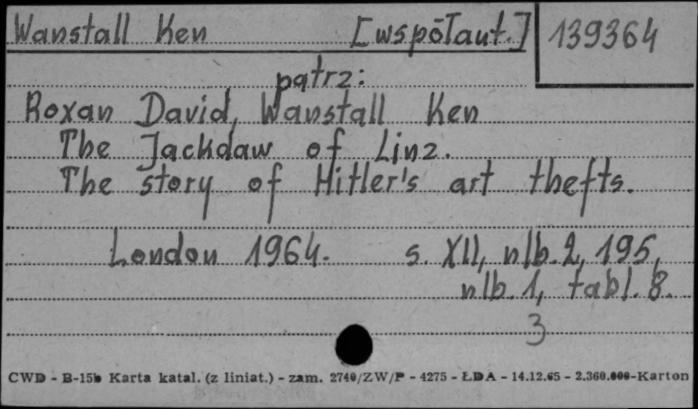 Wanstall Ken [współaut.] 139364
patrz:
Roxan David, Wanstall Ken
The Jackdaw of Linz.
The story of Hitler's art thefts.
London 1964. s. XII, nlb. 2, 195,
nlb. 1, tabl. 8.
3
CWD - B-15b Karta katal. (z liniat.) - zam. 2740/ZW/P - 4275 - ŁDA - 14.12.65 - 2.360.000-Karton